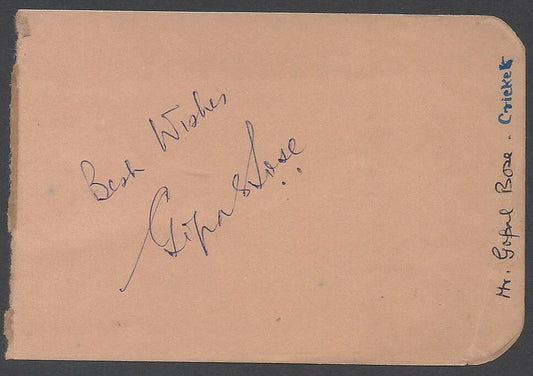 Best Wishes
Gopal Bose
Mr. Gopal Bose. Cricket